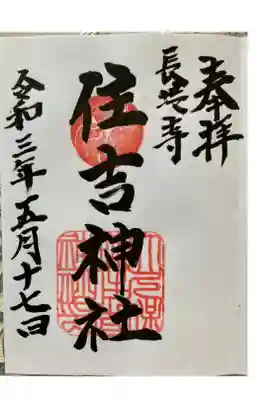 奉拝
長等寺
住吉神社
令和三年五月十七日